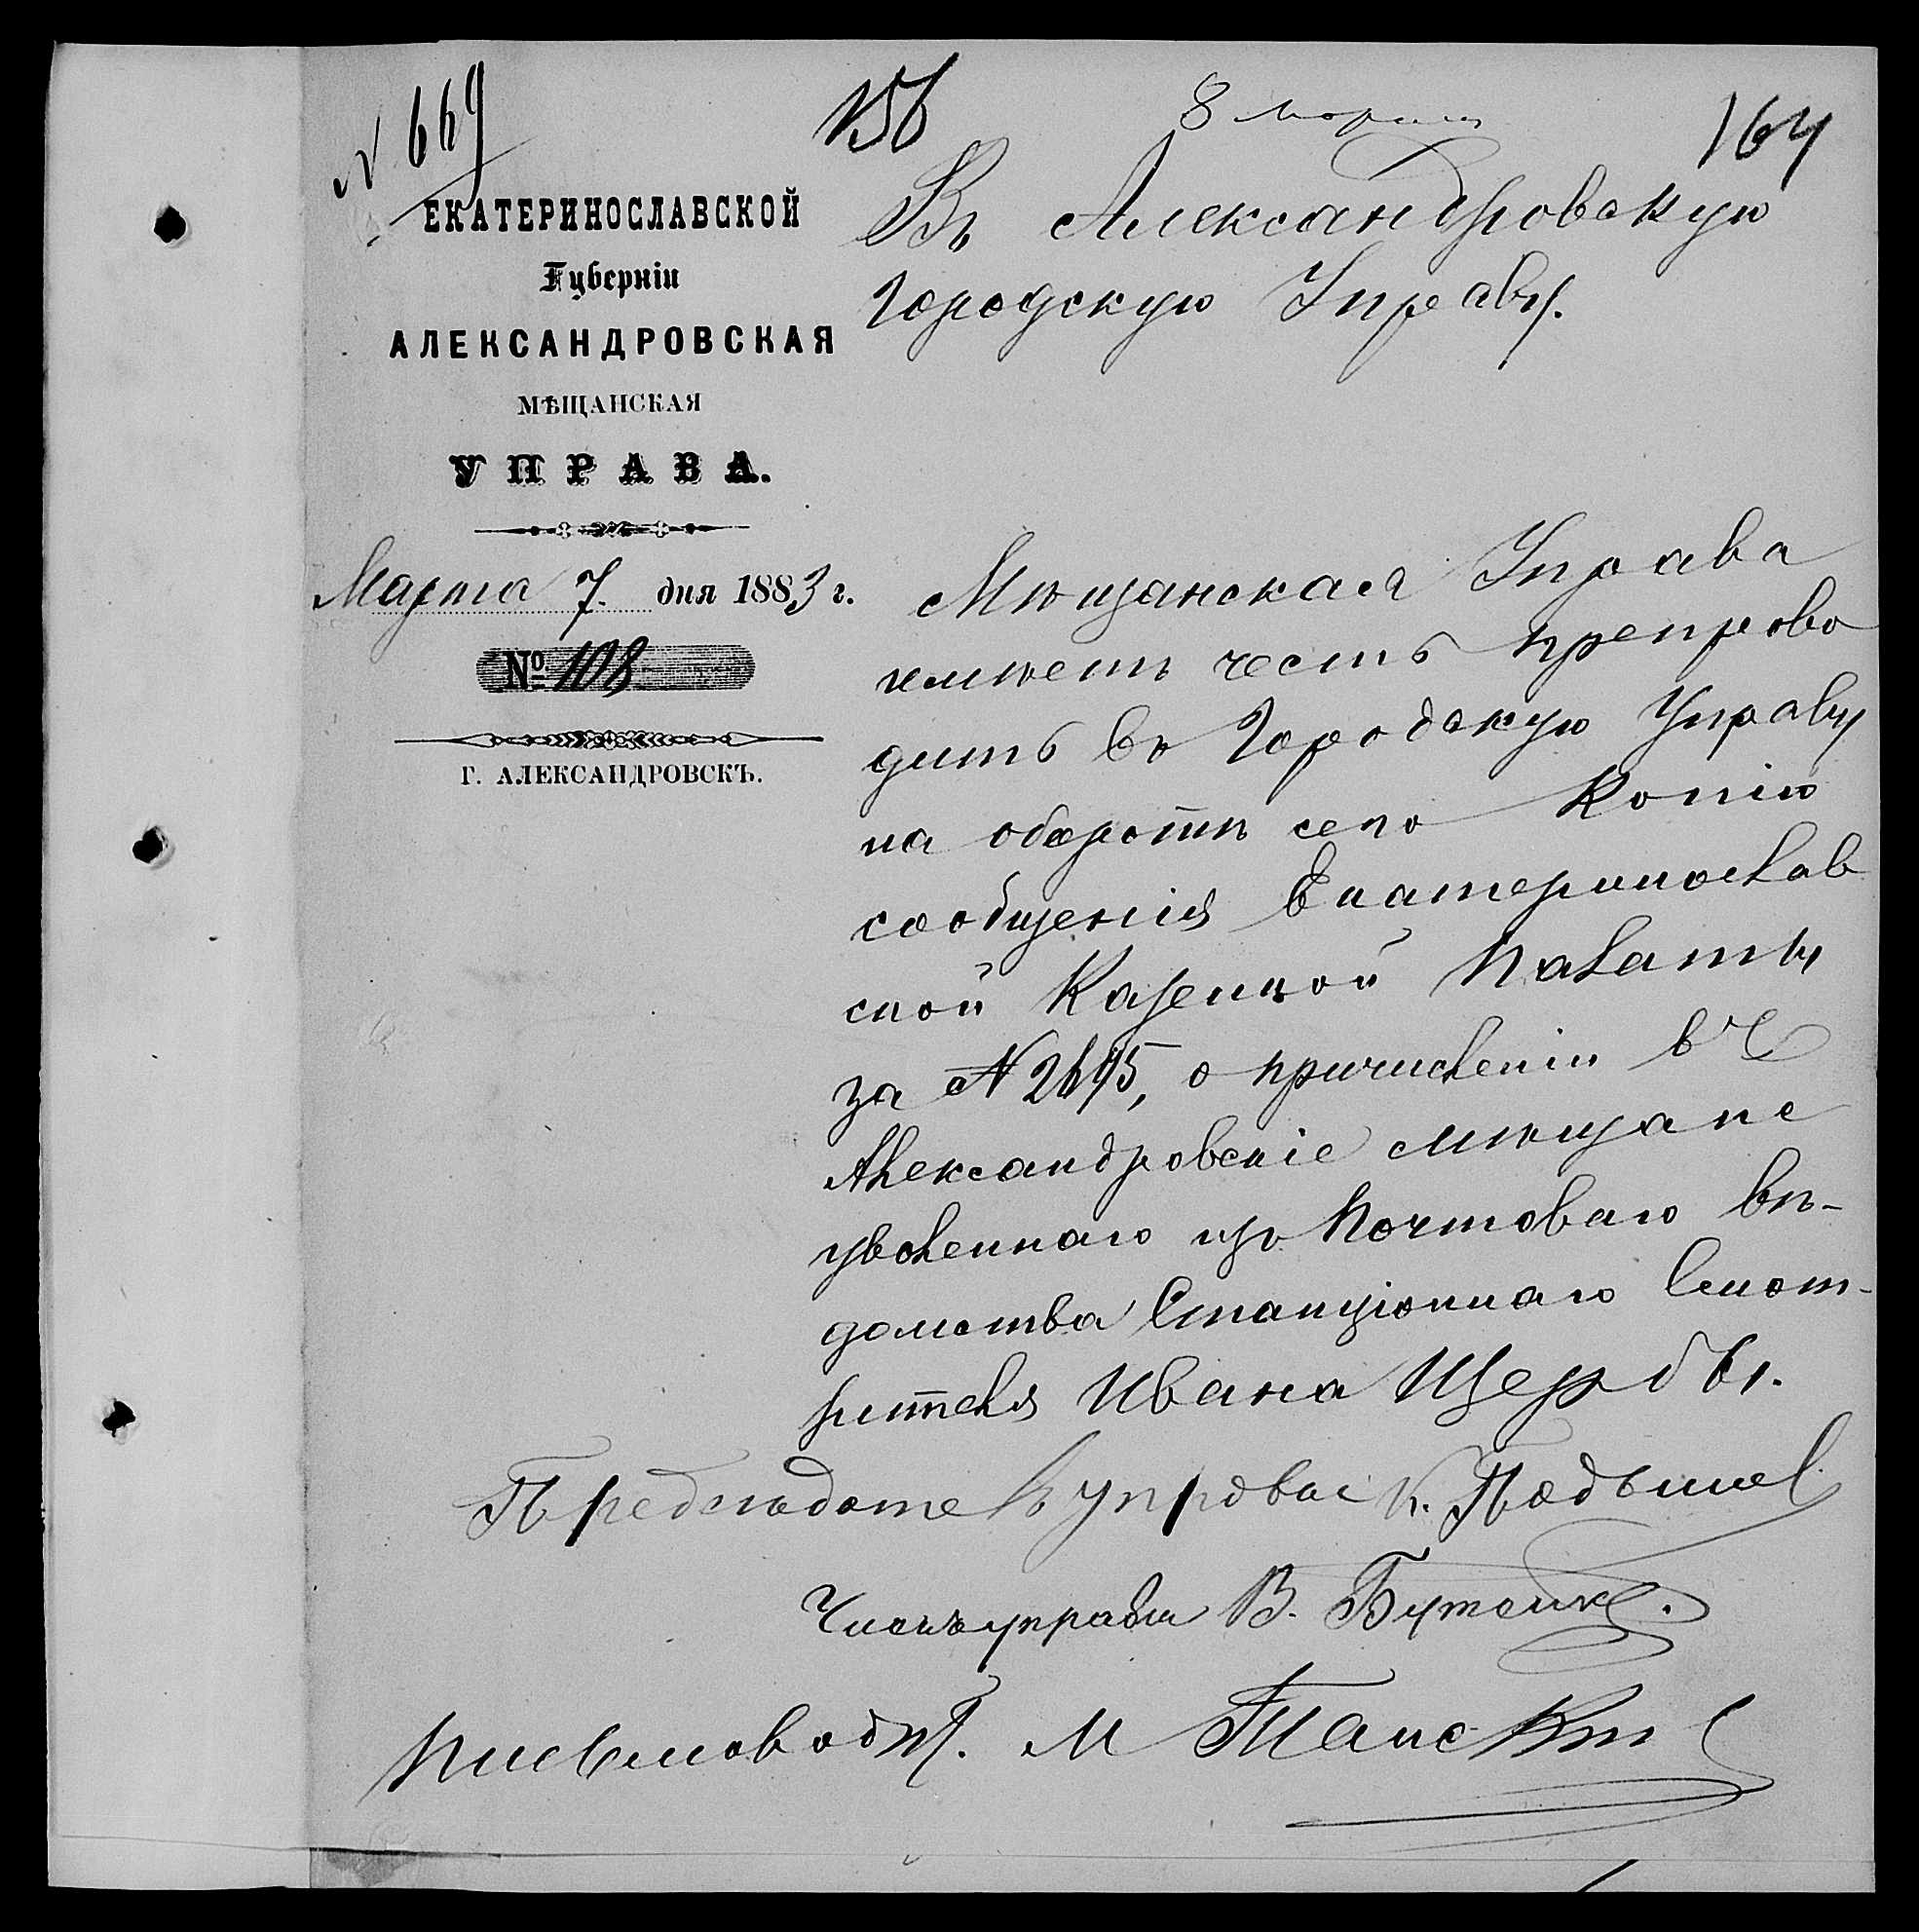 N 669
156
8 марта
164
ЕКАТЕРИНОСЛАВСКОЙ
Губернiи
АЛЕКСАНДРОВСКАЯ
МѢЩАНСКАЯ
УПРАВА.
Марта 7. дня 1883 г.
№ 108
Г. АЛЕКСАНДРОВСКЪ.
Въ Александровскую
Городскую Управу.
Мѣщанская Управа
имѣетъ честь препрово
дить въ Городскую Управу
на оборотѣ сего Копію
сообщенія Екатеринослав
ской Казенной Палаты
за N 2645, о причисленіи въ
Александровскіе мѣщане
уволеннаго изъ Почтоваго вѣ-
домства Станціоннаго Смот-
рителя Ивана Щербы.
Предсѣдатель управы К.
Членъ управы В. Бутенко.
Письмовод. М